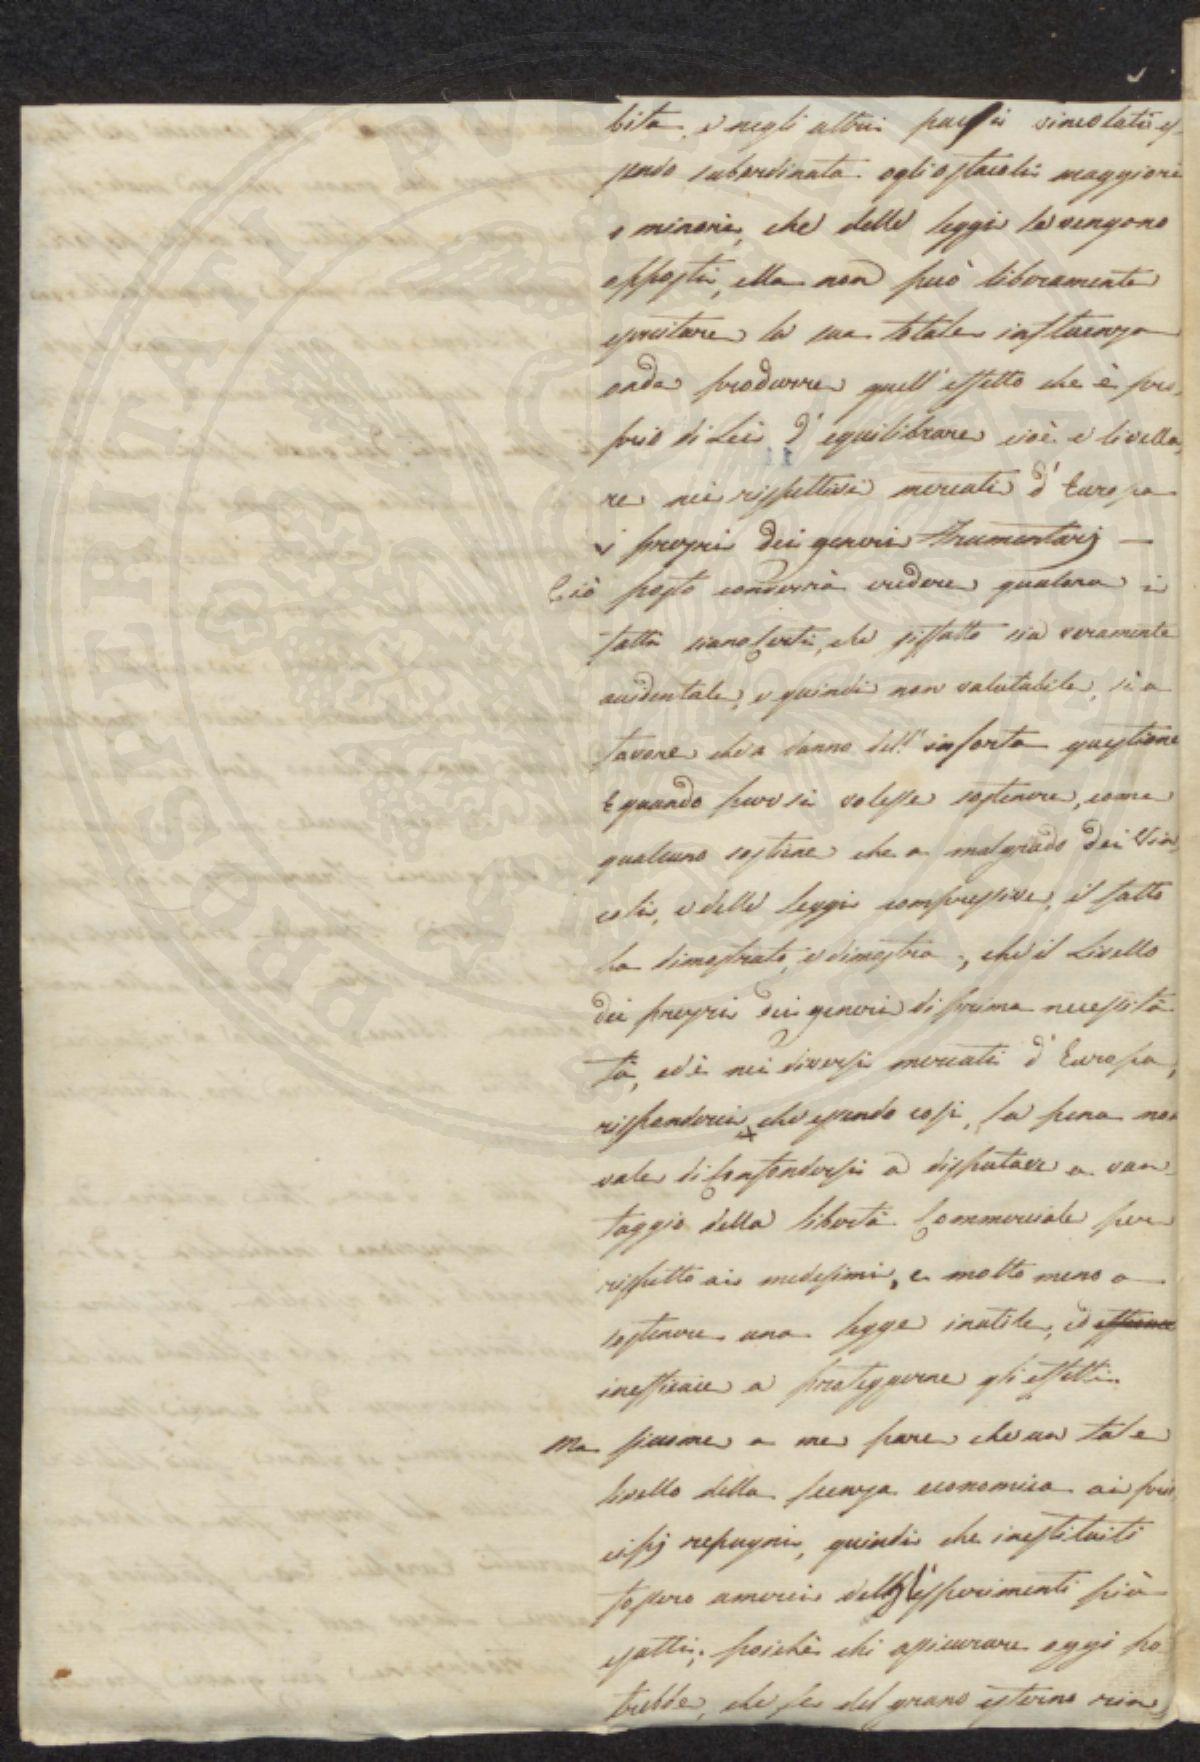 bita, e negli altri paesi vincolati es-
sendo subordinata agli ostacoli maggiori
o minori, che delle leggi le vengono
opposti, ella non può liberamente
esercitare la sua totale influenza
onde produrre quell'effetto che è pro-
prio di Lei d'equilibrare cioè e livella-
re nei rispettivi mercati d'Europa
i prezzi dei generi frumentarj —
Ciò posto converrà vedere qualora i
fatti siano certi, che siffatto sia veramente
accidentale, e quindi non valutabile, sì a
favore che a danno dell'insorta questione
E quando pure si volesse sostenere, come
qualcuno sostiene che a malgrado dei Vin-
coli, e delle leggi compressive, il fatto
ha dimostrato, e dimostra, che il Livello
dei prezzi dei generi di prima necessità
tà, ed è nei diversi mercati d'Europa,
risponderei, che essendo così, la pena non
vale di confondersi a disputare a van-
taggio della libertà Commerciale per
rispetto ai medesimi, e molto meno a
sostenere una legge inutile, ed
inefficace a proteggerne gli effetti.
Ma siccome a me pare che un tale
livello della scienza economica ai prin-
cipj repugni, quindi che instituiti
fossero amerei dell'esperimenti più
esatti; poichè chi assicurare oggi po-
trebbe, che se del grano esterno rin-